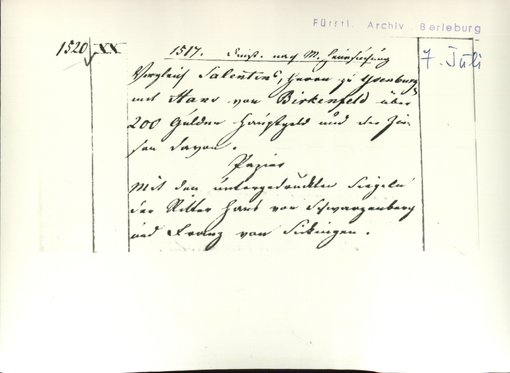 Fürstl. Archiv Berleburg
1520 XX.
7. Juli
1517. Dinst. nach M. Heimsuchung
Vergleich Salentins, Herrn zu Ysenburg
mit Hans von Birkenfeld über
200 Gulden Hauptgeld und der Zin-
sen davon.
Papier
Mit den untergedruckten Siegeln
der Ritter Hans von Schwarzenberg
und Franz von Sickingen.